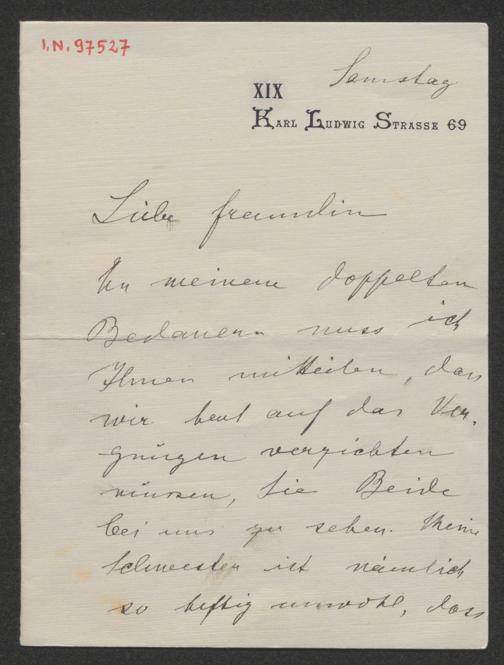 I.N. 97527
Samstag
XIX
Karl Ludwig Strasse 69
Liebe Freundin
Zu meinem doppelten
Bedauern muss ich
Ihnen mitteilen, dass
wir heut auf das Ver-
gnügen verzichten
müssen, Sie Beide
bei uns zu sehen. Meine
Schwester ist nämlich
so heftig unwohl, dass